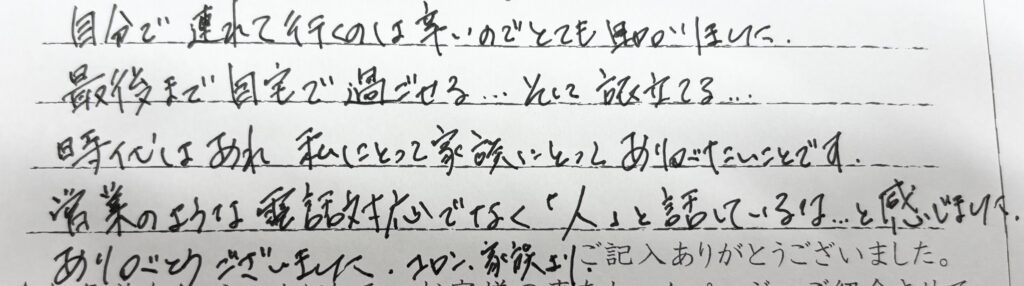 自分で連れて行くのは辛いのでとても助かりました.
最後まで自宅で過ごせる… そして 旅立てる…
時代はあれ 私にとって家族にとって ありがたいことです.
営業のような電話対応でなく「人」と話しているな…と感じました.
ありがとうございました. 家族より. ご記入ありがとうございました。